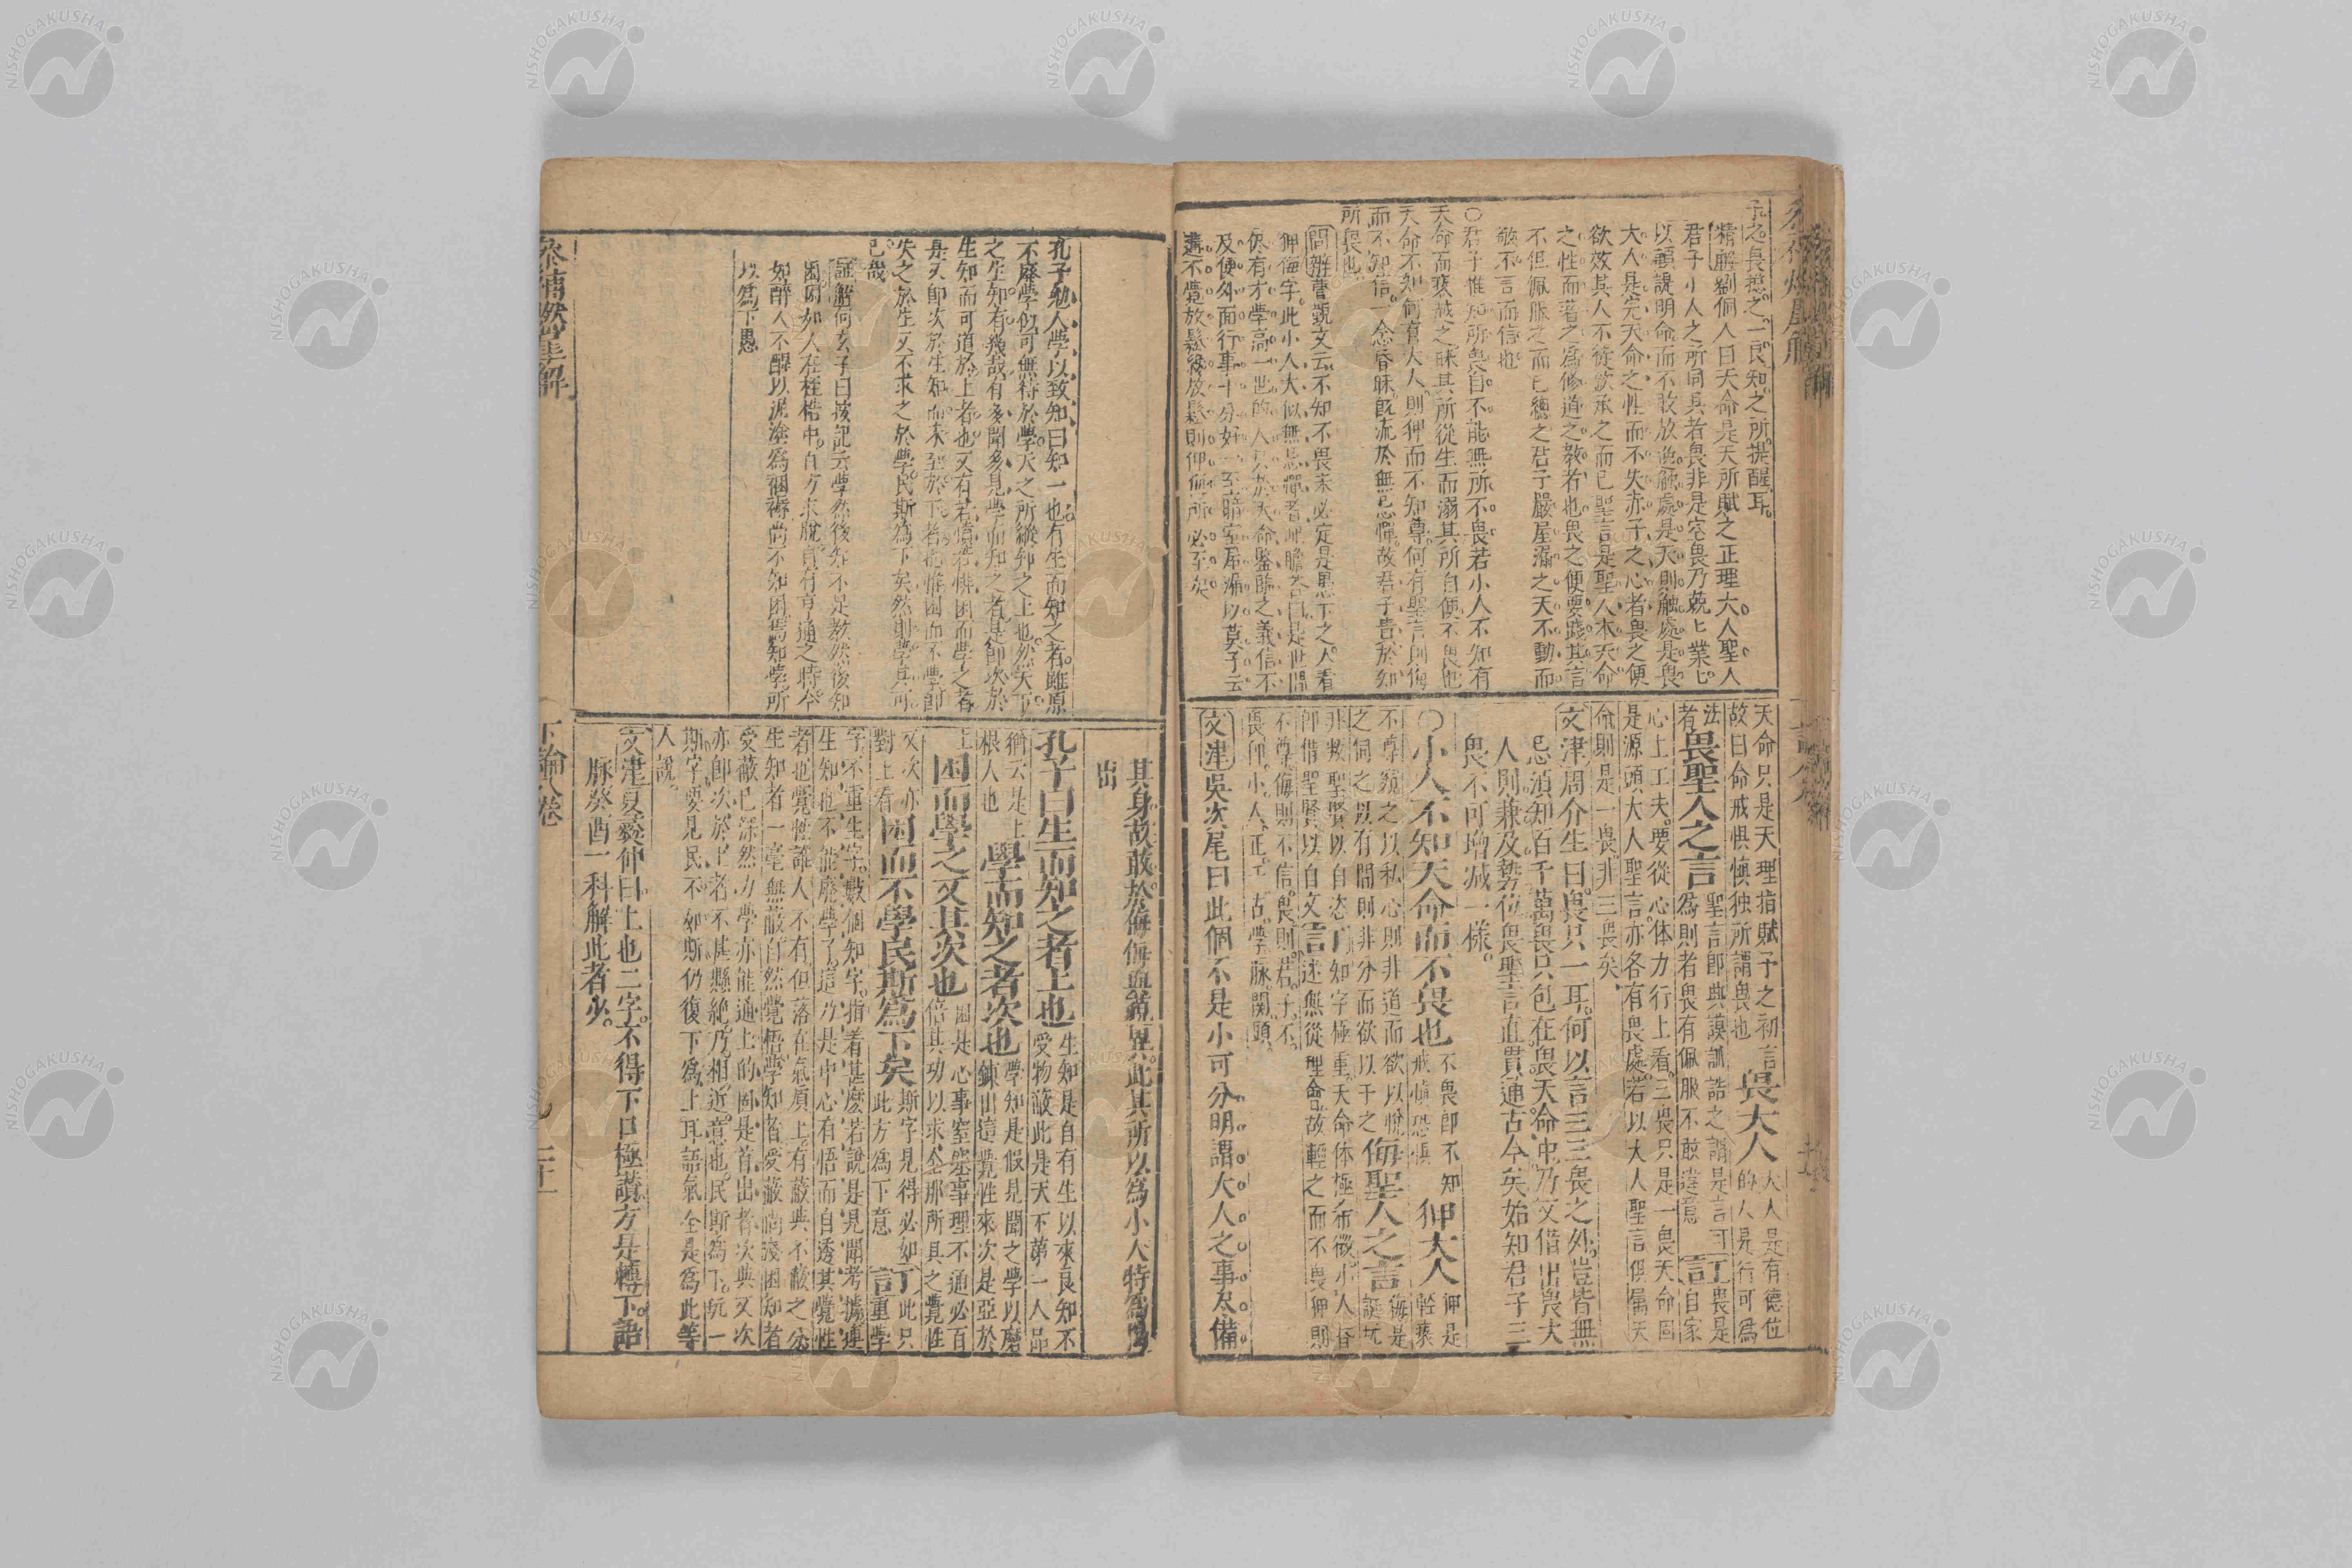 子之畏懋之一良知之所提醒耳。
精解劉侗人曰天命是天所賦之正理大人聖人
君子小人之所同具者畏非是空畏乃兢匕業匕
以顧諟明命而不敢放逸觸處是天則觸處是畏
大人是完天命之性而不失亦子之心者畏之便
欲效其人不徒欽承之而已聖言是聖人本天命
之性而著之為修道之教者也畏之便要踐其言
不但佩服之而已總之君子嚴屋漏之天不動而
敬不言而信也
○君子惟知所畏自不能無所不畏若小人不知有
天命而褻越之昧其所從生而溺其所自便不畏也
天命不知何有大人則狎而不知尊何有聖言則侮
而不知信一念昏昧既流於無忌憚故君子吉於知
所畏也
問辨曹覲文云不知不畏未必定是愚下之人看
狎侮字此小人大似無忌憚者
侭有才學高一世的人只於天命鑒臨之義信不
及便外面行事十分好一至暗室屋漏以莫予云
遘不覺放鬆後放鬆則狎侮所必至矣
天命只是天理指賦予之初言畏大人大人是有德位
故曰命戒惧慎独所謂畏也的人是行可為
法者畏聖人之言聖言即典謨訓誥之謂是言可為則者畏有佩服不敢違意訂畏是自家
心上工夫要從心体力行上看三畏只是一畏天命固
是源頭大人聖言亦各有畏處若以大人聖言俱屬天
命則是一畏非三畏矣
文津周介生曰畏只一耳何以言三三畏之外豈皆無
忌須知百千萬畏只包在畏天命中乃又借出畏大
人則兼及勢位畏聖言直貫通古今矣始知君子三
畏不可增減一様。
○小人不知天命而不畏也不畏即不知戒慎恐惧狎大人狎是輕褻
不尊窺之以私心則非道而欲以悅侮聖人之言侮是
之伺之以有間則非分而欲以干之戲玩
非毀聖賢以自恣訂知字極重天命体極布微小人昏
即借聖賢以自文言迷無從理會故輕之而不畏狎則
不尊侮則不信畏則君子不
畏仰小人正千古學脉關頭
文津吳次尾曰此個不是小可分明謂大人之事尽備
其身故敢於侮侮血氣異此其所以為小人特為
出
孔子曰生而知之者上也生知是自有生以來良知不受物蔽此是天下第一人品
猶云是上根人也學而知之者次也學知是假見聞之學以磨鍊出這覺性來次是亞於
上困而學之又其次也困是心事窒塞事理不通必百倍其功以求全那所具之覺性
又次亦對上看困而不學民斯為下矣斯字見得必如此方為下意訂此只重學
字不重生字數個知字指着甚麽若說是見聞考據連
生知也不能廢學了這乃是中心有悟而自透其覺性
者也覺性誰人不有但落在氣質上有蔽與不蔽之分
生知者一毫無蔽自然覺悟學知者受蔽尚淺困知者
受蔽已深然力學亦能通上的困是首出者次與又次
亦即次於上者不甚懸絶乃相近意也民斯為下玩一
斯字要見民不如斯仍復下為上耳語氣全是為此等
人說
文津夏彝仲曰上也二字不得下口極讚方是轉下語
脉癸酉一科解此者少。
孔子勉人學以致知曰知一也有生而知之者雖原
不廢學似可無待於學天之所縱知之上也然天下
之生知有幾哉有多聞多見學而知之者是即次於
生知而可進於上者也又有若憤若悱困而學之者
是又即次於生知而未至於下者也惟困而不學即
失之於生又不求之於學民斯為下矣然則學其可
已哉
証解何玄子曰按記云學然後知不足教然後知
困困如人在桎梏中百方求脫自有亨通之時今
如醉人不醒以泥塗為裀褥尚不知困焉知學所
以為下愚
参補燃犀解
下論八卷